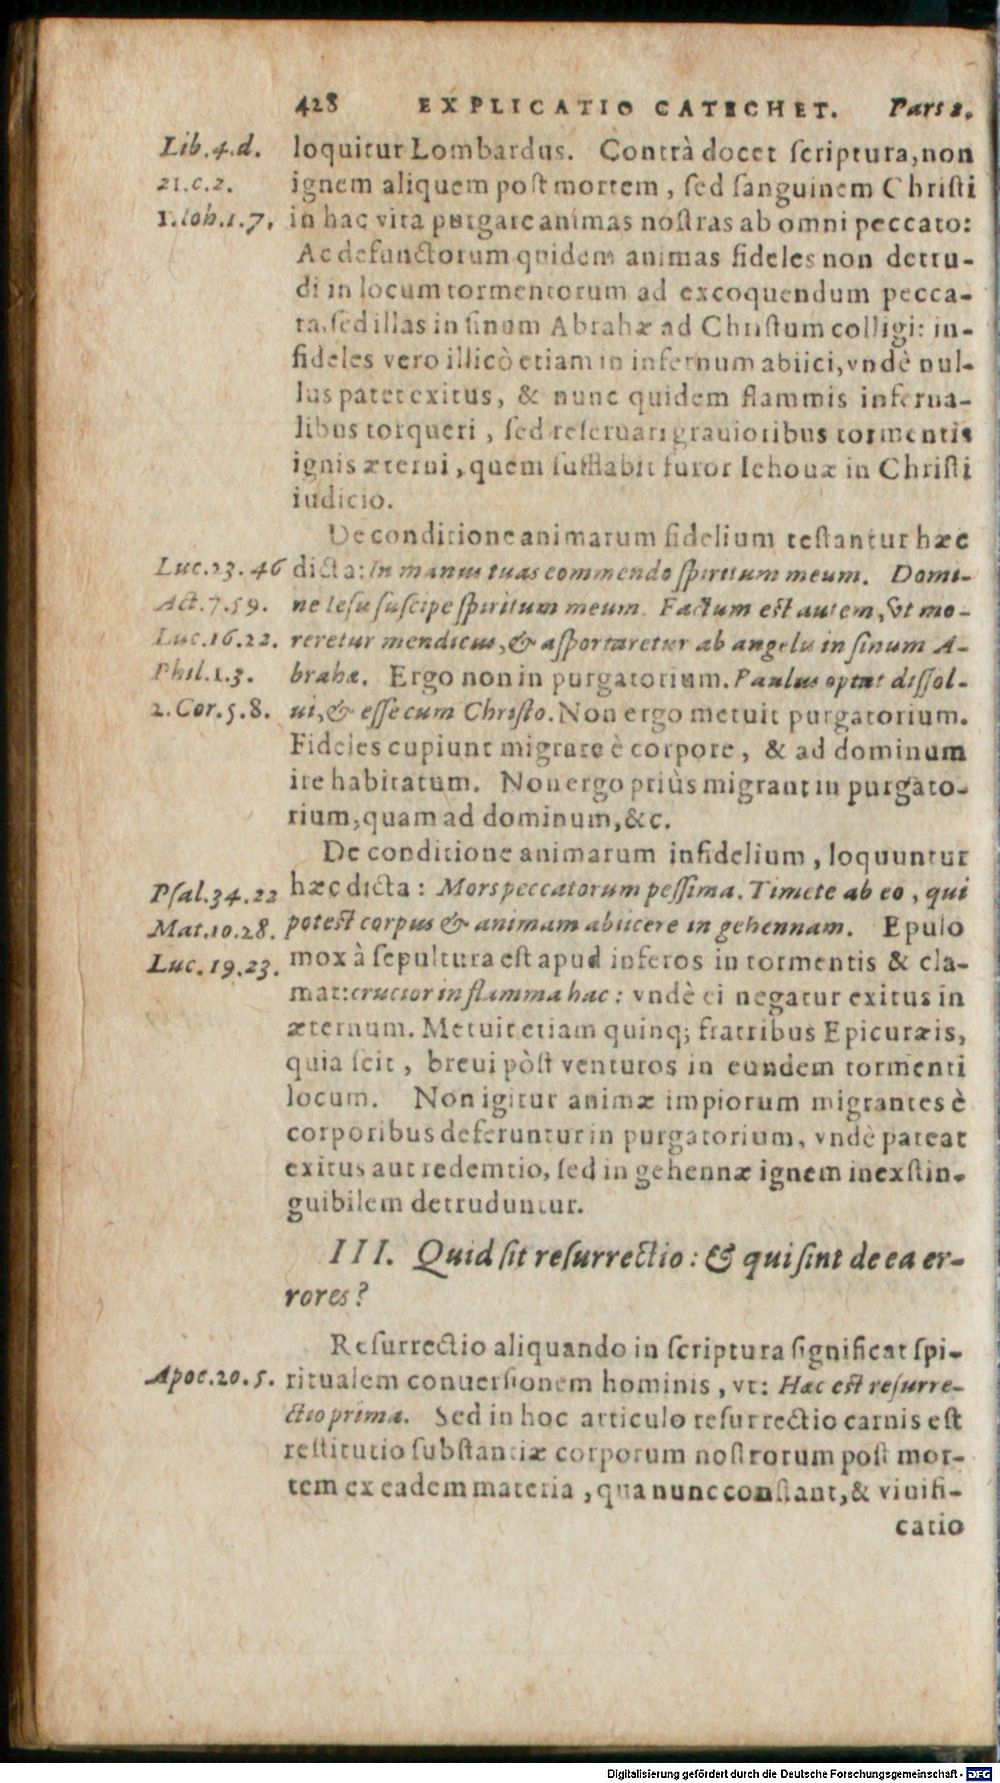 428 EXPLICATIO CATECHET. Pars 2.
Lib.4.d. loquitur Lombardus. Contrà docet ſcriptura, non
21.c.2. ignem aliquem poſt mortem, ſed ſanguinem Chriſti
1.Ioh.1.7. in hac vita purgare animas noſtras ab omni peccato:
Ac defunctorum quidem animas fideles non detru-
di in locum tormentorum ad excoquendum pecca-
ta, ſed illas in ſinum Abrahæ ad Chriſtum colligi: in-
fideles vero illicò etiam in infernum abiici, vndè nul-
lus patet exitus, & nunc quidem flammis inferna-
libus torqueri, ſed reſeruari grauioribus tormentis
ignis æterni, quem ſufflabit furor Iehouæ in Chriſti
iudicio.
De conditione animarum fidelium teſtantur hæc
Luc.23.46 dicta: In manus tuas commendo ſpiritum meum. Domi-
Act.7.59. ne Ieſu ſuſcipe ſpiritum meum. Factum eſt autem, vt mo-
Luc.16.22. reretur mendicus, & aſportaretur ab angelis in ſinum A-
Phil.1.3. brahæ. Ergo non in purgatorium. Paulus optat diſſol-
2.Cor.5.8. ui, & eſſe cum Chriſto. Non ergo metuit purgatorium.
Fideles cupiunt migrare è corpore, & ad dominum
ire habitatum. Non ergo priùs migrant in purgato-
rium, quam ad dominum, &c.
De conditione animarum infidelium, loquuntur
Pſal.34.22 hæc dicta: Mors peccatorum peſſima. Timete ab eo, qui
Mat.10.28. poteſt corpus & animam abiicere in gehennam. Epulo
Luc.19.23. mox à ſepultura eſt apud inferos in tormentis & cla-
mat: crucior in flamma hac: vndè ei negatur exitus in
æternum. Metuit etiam quinq; fratribus Epicuræis,
quia ſcit, breui pòſt venturos in eundem tormenti
locum. Non igitur animæ impiorum migrantes è
corporibus deferuntur in purgatorium, vndè pateat
exitus aut redemtio, ſed in gehennæ ignem inexſtin-
guibilem detruduntur.
III. Quid ſit reſurrectio: & qui ſint de ea er-
rores?
Reſurrectio aliquando in ſcriptura ſignificat ſpi-
Apoc.20.5. ritualem conuerſionem hominis, vt: Hæc eſt reſurre-
ctio prima. Sed in hoc articulo reſurrectio carnis eſt
reſtitutio ſubſtantiæ corporum noſtrorum poſt mor-
tem ex eadem materia, qua nunc conſtant, & viuifi-
catio
Digitalisierung gefördert durch die Deutsche Forschungsgemeinschaft - DFG